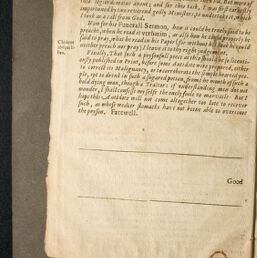 importuned by two reverend godly Ministers, to undertake it, which
I took as a call from God.
Now for his Funerall Sermon, how it could be truly said to be
preacht, when he read it verbatim, as also how he could properly be
said to pray, what he read in his Paper (for without his book he could
neither preach nor pray) I leave it to thy right judgement.
Finally, That such a personall piece as this should be so licenti-
ously published in Print, before some Antidote were prepared, either
to correct its Malignancy, or to corroborate the simple hearted peo-
ple, apt to drink in such a sugared potion, from the mouth of such a
bold dying man, though a Traitor; if understanding men do not
wonder, I shall confesse my selfe the onely foole to marvaile. But I
hope this Antidote will not come altogether too late to recover
such, as whose weaker stomacks have not been able to overcome
the poyson. Farewell.
Good